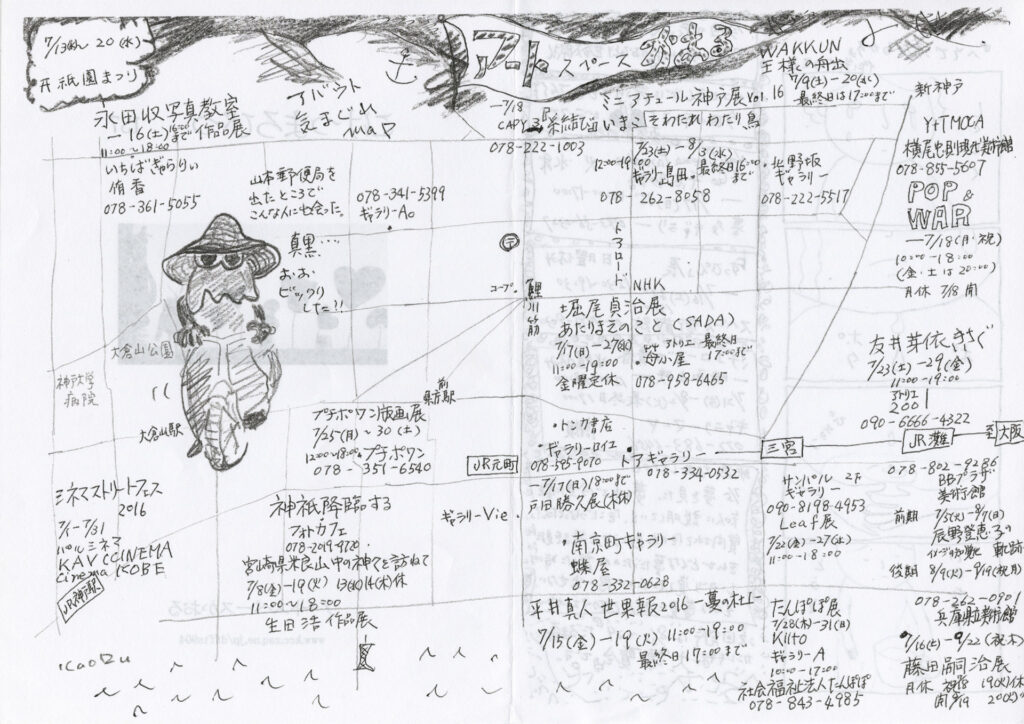 7/13(水)〜20(水)
祇園まつり
アート
スペース
かおる
永田収写真教室
16(土)まで作品展
11:00〜18:00
いちばぎゃらりぃ
侑香
078-361-5055
アバウト
気まぐれ
map
山本郵便局を
出たところで
こんな人に出会った。
078-341-5399
ギャラリーAo
真黒…
おお
ビックリ
した!!
ミニアチュール神戸展Vol.16
WAKKUN
王様の舟出
7/9(土)-20(水)
最終日は17:00まで
-7/18
いまこそわたれわたり鳥
078-222-1003
7/23(土)-8/3(水)
12:00-19:00
最終日16:00まで
ギャラリー島田
078-262-8058
北野坂
ギャラリー
078-222-5517
新神戸
Y+TMOCA
横尾忠則現代美術館
078-855-5607
POP
&
WAR
-7/18(月・祝)
10:00-18:00
(金・土は20:00)
月休 7/18開
トアロード
コープ
鯉川筋
NHK
堀尾貞治展
あたりまえのこと(SADA)
7/17(日)-27(水)
最終日
17:00まで
11:00-19:00
金曜定休
078-958-6465
友井芽依きさぐ
7/23(土)-29(金)
11:00-19:00
アトリエ
2001
090-6666-4322
大倉山公園
神戸大学
病院
大倉山駅
県庁前駅
プチポワン版画展
7/25(月)〜30(土)
12:00〜18:00
プチポワン
078-351-6540
トンカ書店
ギャラリーロイエ
078-585-9070
トアギャラリー
078-334-0532
JR元町
三宮
JR灘
至大阪
-7/17(日)18:00まで
戸田勝久展(木休)
ギャラリーVie
サンパル 2F
ギャラリー
090-8198-4953
Leaf展
7/22(金)-27(土)
11:00-18:00
078-802-9286
BBプラザ
美術館
前期
7/5(火)-8/7(日)
辰野登恵子の
軌跡
後期 8/9(火)-9/19(祝月)
シネマストリートフェス
2016
7/1-7/31
パルシネマ
KAVC CINEMA
cinema KOBE
JR神戸駅
神祇降臨する
フォトカフェ
078-2019-9720
宮崎県米良山中の神々を訪ねて
7/8(金)-19(火) 13(水)14(木)休
11:00〜18:00
生田浩作品展
南京町ギャラリー
蝶屋
078-332-0628
平井真人 世界報2016
7/15(金)-19(火) 11:00-19:00
最終日17:00まで
たんぽぽ展
7/28(木)-31(日)
Kiito
ギャラリーA
10:00-17:00
社会福祉法人たんぽぽ
078-843-4985
078-262-0901
兵庫県立美術館
7/16(土)-9/22(祝木)
藤田嗣治展
月休
KaoRu